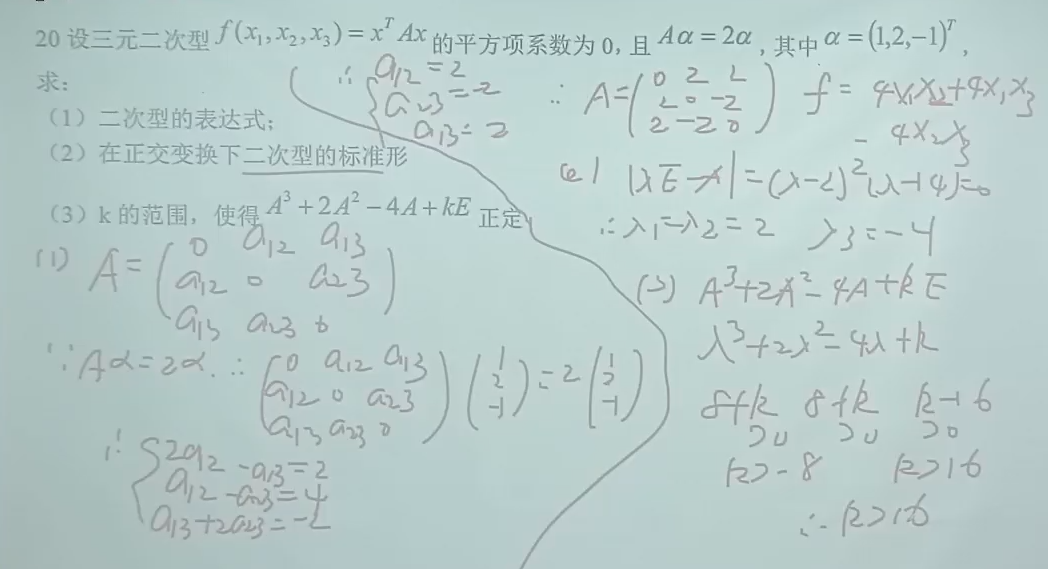 20 设三元二次型 f(x₁,x₂,x₃)=xᵀAx 的平方项系数为 0, 且 Aα=2α, 其中 α=(1,2,−1)ᵀ,
求:
(1) 二次型的表达式;
(2) 在正交变换下二次型的标准形
(3) k 的范围, 使得 A³+2A²−4A+kE 正定
(1) A=(0 a₁₂ a₁₃
a₁₂ 0 a₂₃
a₁₃ a₂₃ 0)
∵Aα=2α. ∴ (0 a₁₂ a₁₃
a₁₂ 0 a₂₃
a₁₃ a₂₃ 0) (1 2 -1) = 2 (1 2 -1)
∴ {2a₁₂-a₁₃=2
a₁₂-a₂₃=4
a₁₃+2a₂₃=-2
∴ {a₁₂=2
a₂₃=-2
a₁₃=2
∴ A=(0 2 2
2 0 -2
2 -2 0) f= 4x₁x₂+4x₁x₃
- 4x₂x₃
(2) |λE-A|=(λ-2)²(λ+4)=0
∴λ₁=λ₂=2 λ₃=-4
(3) A³+2A²-4A+kE
λ³+2λ²-4λ+k
8+k 8+k k-16
>0 >0 >0
k>-8 k>16
∴k>16